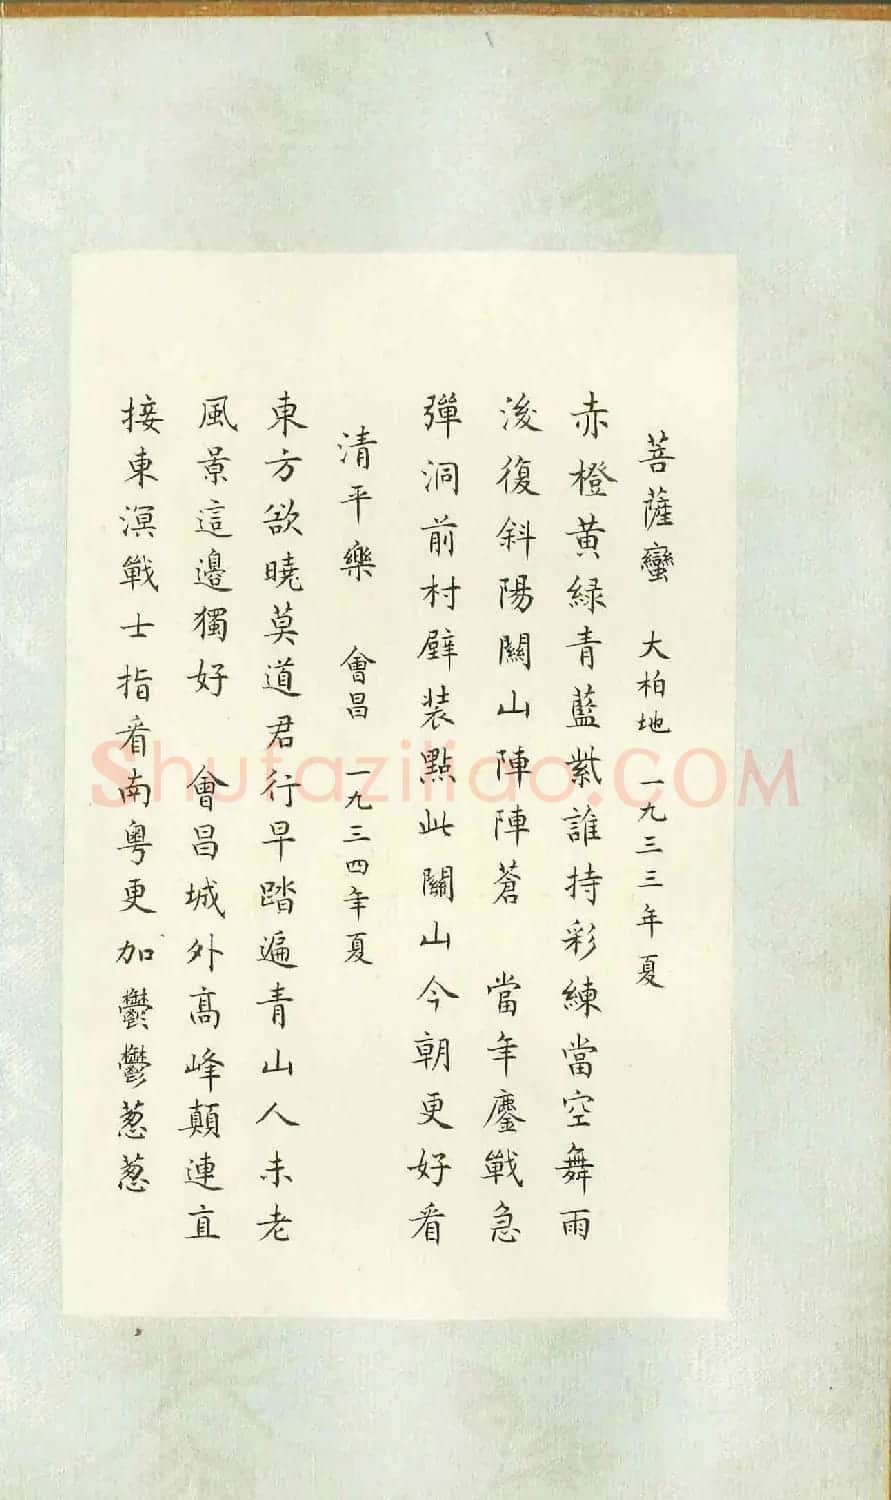 菩薩蠻 大柏地 一九三三年夏
赤橙黃緑青藍紫誰持彩練當空舞雨
後復斜陽關山陣陣蒼 當年鏖戰急
彈洞前村壁装點此關山今朝更好看
清平樂 會昌 一九三四年夏
東方欲曉莫道君行早踏遍青山人未老
風景這邊獨好 會昌城外高峰顛連直
接東溟戰士指看南粤更加鬱鬱葱葱
Shufaziliao.COM